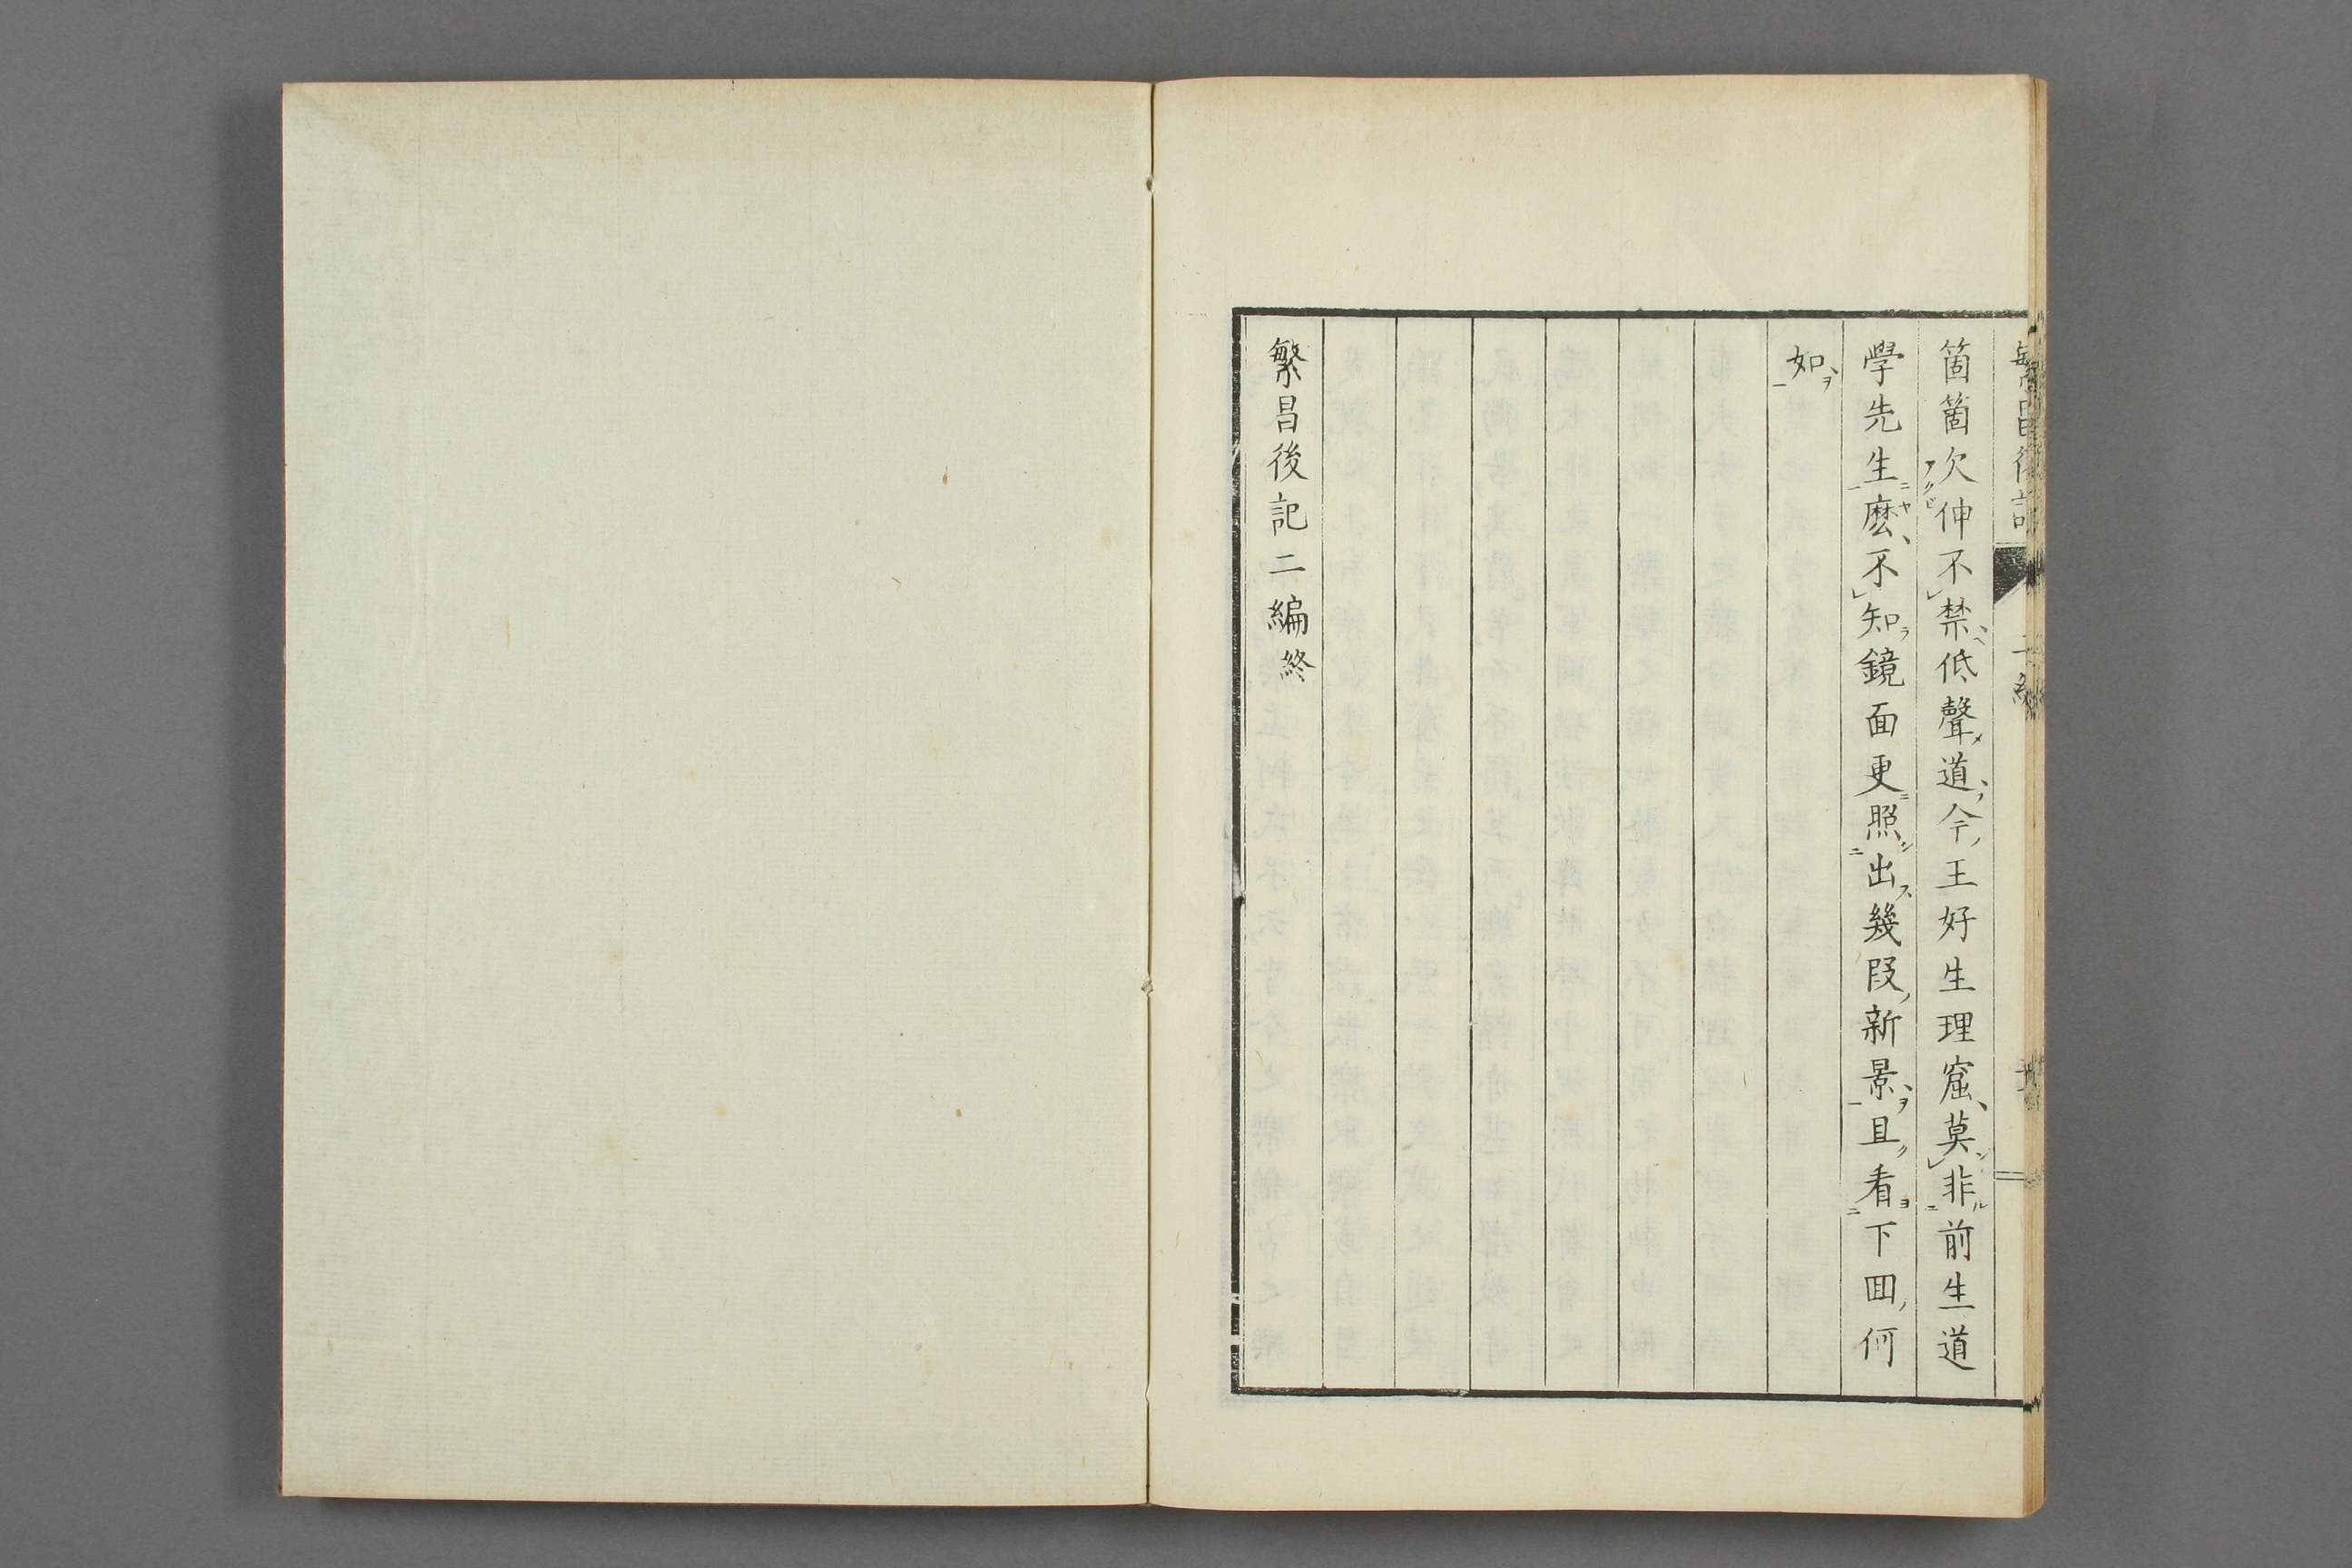 箇箇欠伸不禁低聲道今王好生理窟莫非前生道
學先生麼不知鏡面更照出幾段新景且看下回何
如
繁昌後記二編終